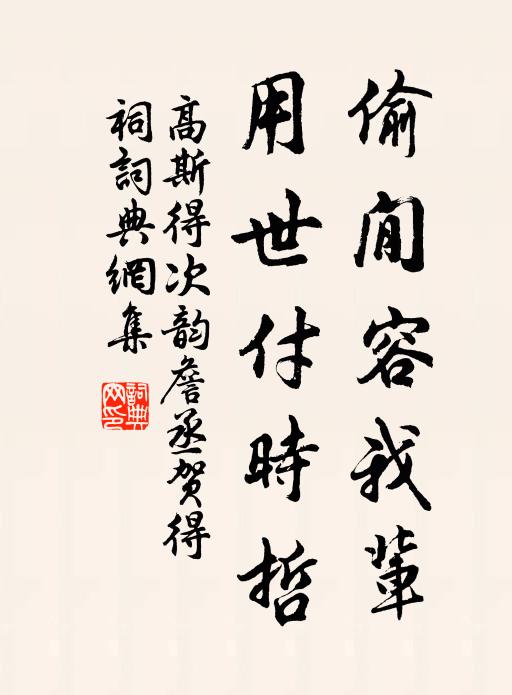 偷閒容我輩
用世付時哲
高斯得次韵詹丞贺得
祠詞典網集
詞典網印